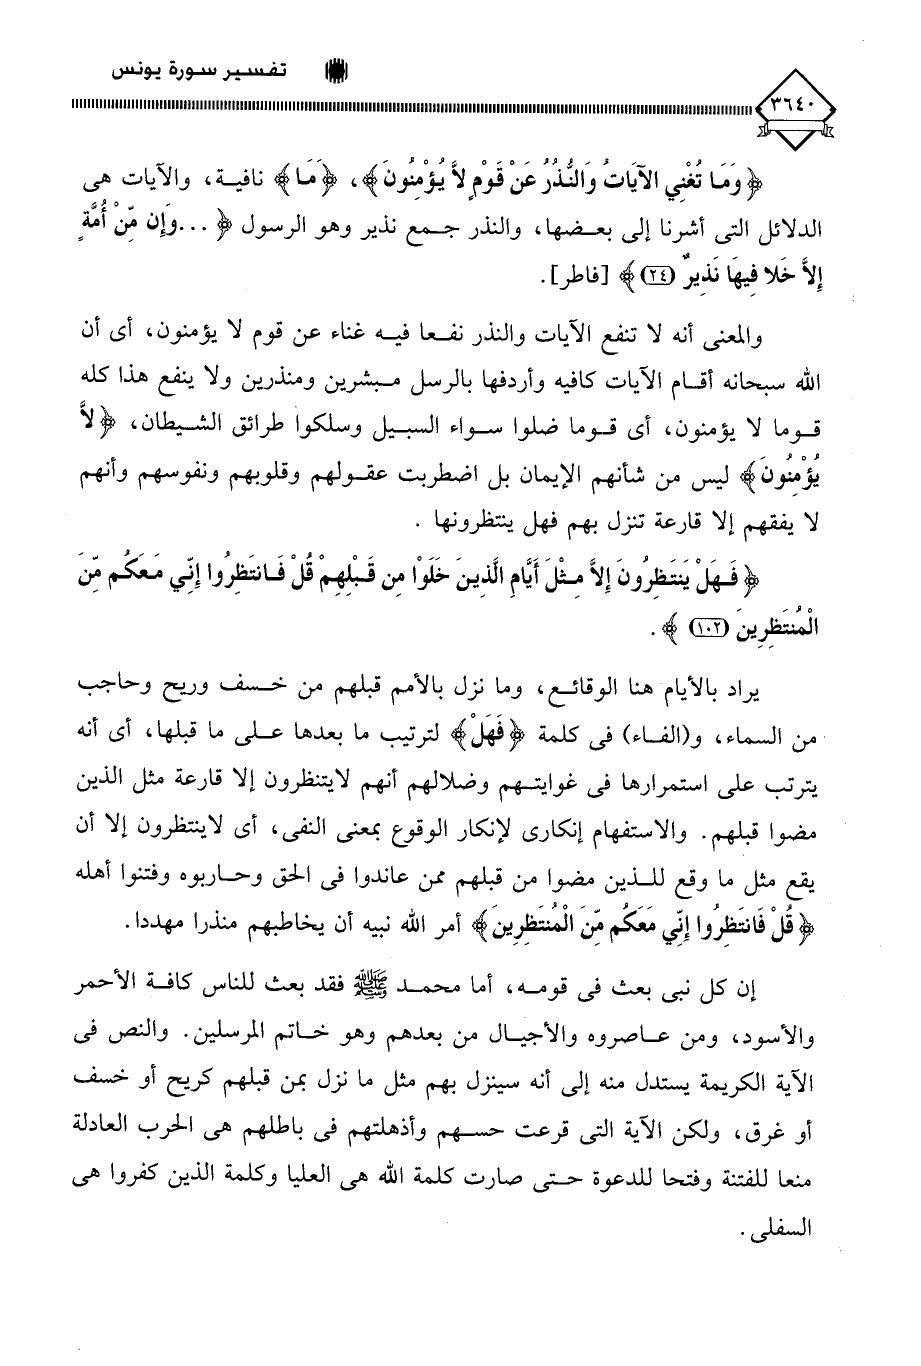 تفسير سورة يونس
٣٦٤٠
﴿وَمَا تُغْنِي الآيَاتُ وَالنُّذُرُ عَن قَوْمٍ لاَّ يُؤْمِنُونَ﴾، ﴿مَا﴾ نافية، والآيات هى
الدلائل التى أشرنا إلى بعضها، والنذر جمع نذير وهو الرسول ﴿ ...وَإِن مِّنْ أُمَّةٍ
إِلاَّ خَلا فِيهَا نَذِيرٌ (٢٤)﴾ [فاطر].
والمعنى أنه لا تنفع الآيات والنذر نفعا فيه غناء عن قوم لا يؤمنون، أى أن
الله سبحانه أقام الآيات كافيه وأردفها بالرسل مبشرين ومنذرين ولا ينفع هذا كله
قوما لا يؤمنون، أى قوما ضلوا سواء السبيل وسلكوا طرائق الشيطان، ﴿لاَّ
يُؤْمِنُونَ﴾ ليس من شأنهم الإيمان بل اضطربت عقولهم وقلوبهم ونفوسهم وأنهم
لا يفقهم إلا قارعة تنزل بهم فهل ينتظرونها .
﴿فَهَلْ يَنتَظِرُونَ إِلاَّ مِثْلَ أَيَّامِ الَّذِينَ خَلَوْا مِن قَبْلِهِمْ قُلْ فَانتَظِرُوا إِنِّي مَعَكُم مِّنَ
الْمُنتَظِرِينَ (١٠٢) ﴾.
يراد بالأيام هنا الوقائع، وما نزل بالأمم قبلهم من خسف وريح وحاجب
من السماء، و(الفاء) فى كلمة ﴿فَهَلْ﴾ لترتيب ما بعدها على ما قبلها، أى أنه
يترتب على استمرارها فى غوايتهم وضلالهم أنهم لايتنظرون إلا قارعة مثل الذين
مضوا قبلهم. والاستفهام إنكارى لإنكار الوقوع بمعنى النفى، أى لاينتظرون إلا أن
يقع مثل ما وقع للذين مضوا من قبلهم ممن عاندوا فى الحق وحاربوه وفتنوا أهله
﴿قُلْ فَانتَظِرُوا إِنِّي مَعَكُم مِّنَ الْمُنتَظِرِينَ﴾ أمر الله نبيه أن يخاطبهم منذرا مهددا.
إن كل نبى بعث فى قومه، أما محمد ﷺ فقد بعث للناس كافة الأحمر
والأسود، ومن عاصروه والأجيال من بعدهم وهو خاتم المرسلين. والنص فى
الآية الكريمة يستدل منه إلى أنه سينزل بهم مثل ما نزل بمن قبلهم كريح أو خسف
أو غرق، ولكن الآية التى قرعت حسهم وأذهلتهم فى باطلهم هى الحرب العادلة
منعا للفتنة وفتحا للدعوة حتى صارت كلمة الله هى العليا وكلمة الذين كفروا هى
السفلى.